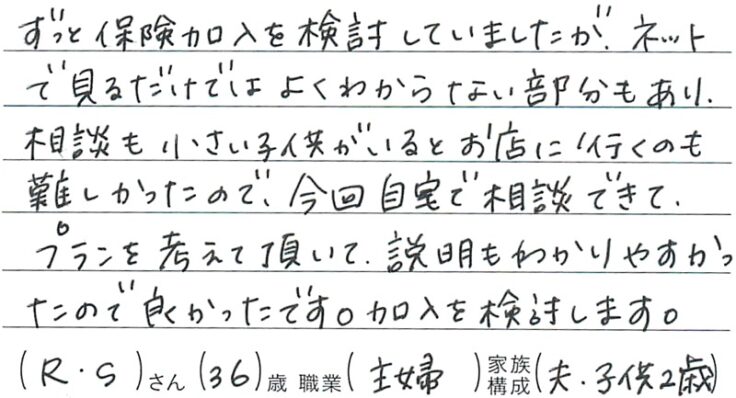 ずっと保険加入を検討していましたが、ネット
で見るだけではよくわからない部分もあり、
相談も小さい子供がいるとお店に行くのも
難しかったので、今回自宅で相談できて、
プランを考えて頂いて、説明もわかりやすかっ
たので良かったです。加入を検討します。
(R・S)さん(36)歳 職業(主婦)家族構成(夫・子供2歳)